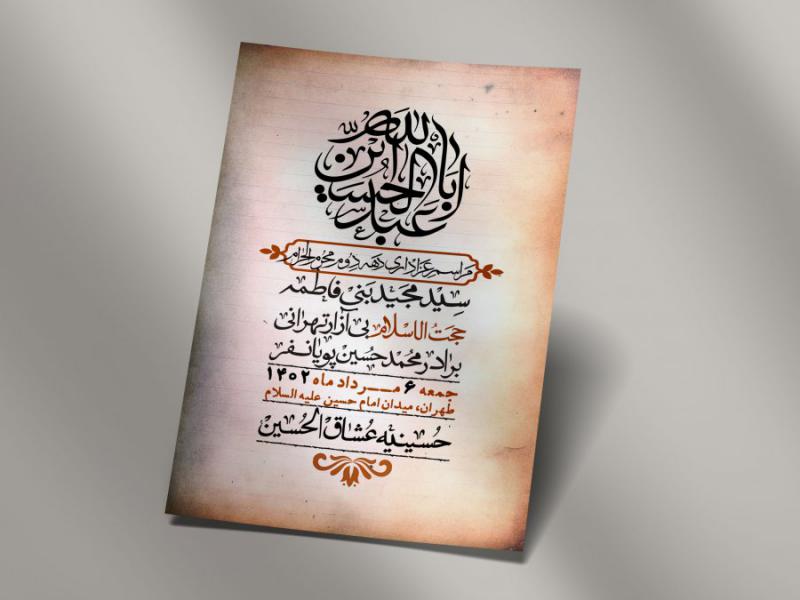 یا اباعبدالله الحسین
مراسم عزاداری دهه دوم محرم الحرام
سید مجید بنی فاطمه
حجت الاسلام بی آزار تهرانی
برادر محمد حسین پویانفر
جمعه ۶ مرداد ماه ۱۴۰۲
طهران، میدان امام حسین علیه السلام
حسینیه عشاق الحسین